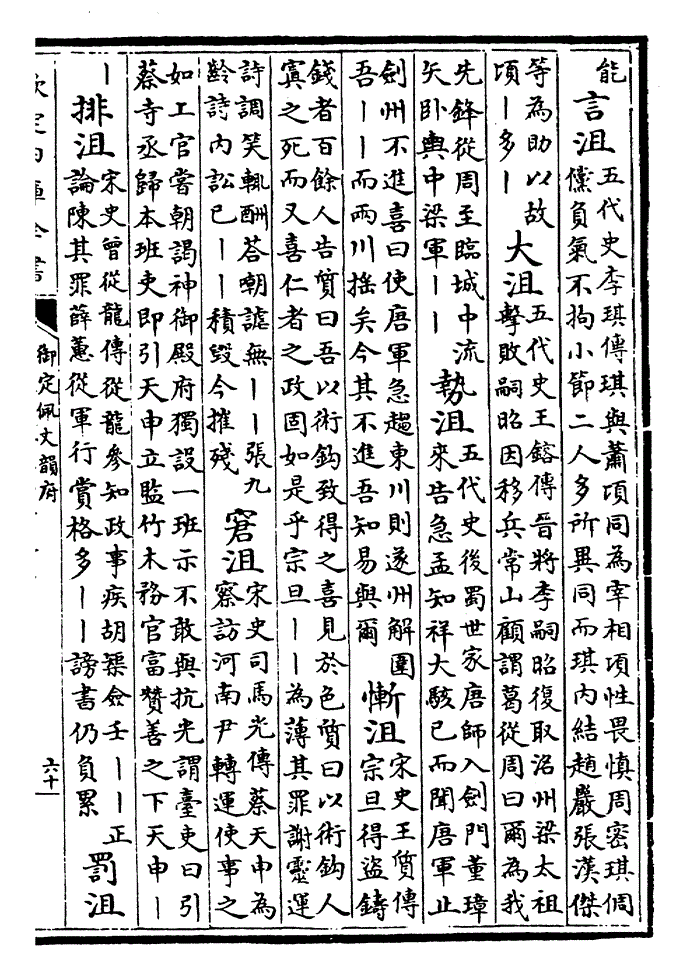 能 言沮 五代史李琪傳琪與蕭項同為宰相項性畏慎周密琪倜
儻負氣不拘小節二人多所異同而琪内結趙嚴張漢傑
等為助以故
項丨多丨 大沮 五代史王鎔傳晉將李嗣昭復取洺州梁太祖
擊敗嗣昭因移兵常山顧謂葛從周曰爾為我
先鋒從周至臨城中流
矢卧輿中梁軍丨丨 勢沮 五代史後蜀世家唐師入劍門董璋
來告急孟知祥大駭已而聞唐軍止
劍州不進喜曰使唐軍急趨東川則遂州解圍
吾丨丨而兩川揺矣今其不進吾知易與爾 慚沮 宋史王質傳
宗旦得盜鑄
錢者百餘人告質曰吾以術鈎致得之喜見於色質曰以術鈎人
寘之死而又喜仁者之政固如是乎宗旦丨丨為薄其罪謝靈運
詩調笑輒酬荅嘲謔無丨丨張九
齡詩内訟已丨丨積毁今摧殘 窘沮 宋史司馬光傳蔡天申為
察訪河南尹轉運使事之
如工官嘗朝謁神御殿府獨設一班示不敢與抗光謂臺吏曰引
蔡寺丞歸本班吏即引天申立監竹木務官富贊善之下天申丨
丨 排沮 宋史曾從龍傳從龍參知政事疾胡榘憸壬丨丨正
論陳其罪薛蕙從軍行賞格多丨丨謗書仍負累 罰沮
欽定四庫全書
御定佩文韻府
六十一